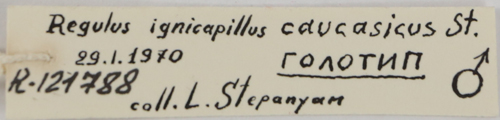 Regulus ignicapillus caucasicus St.
29.I.1970 ГОЛОТИП ♂
R-121788
coll. L. Stepanyan